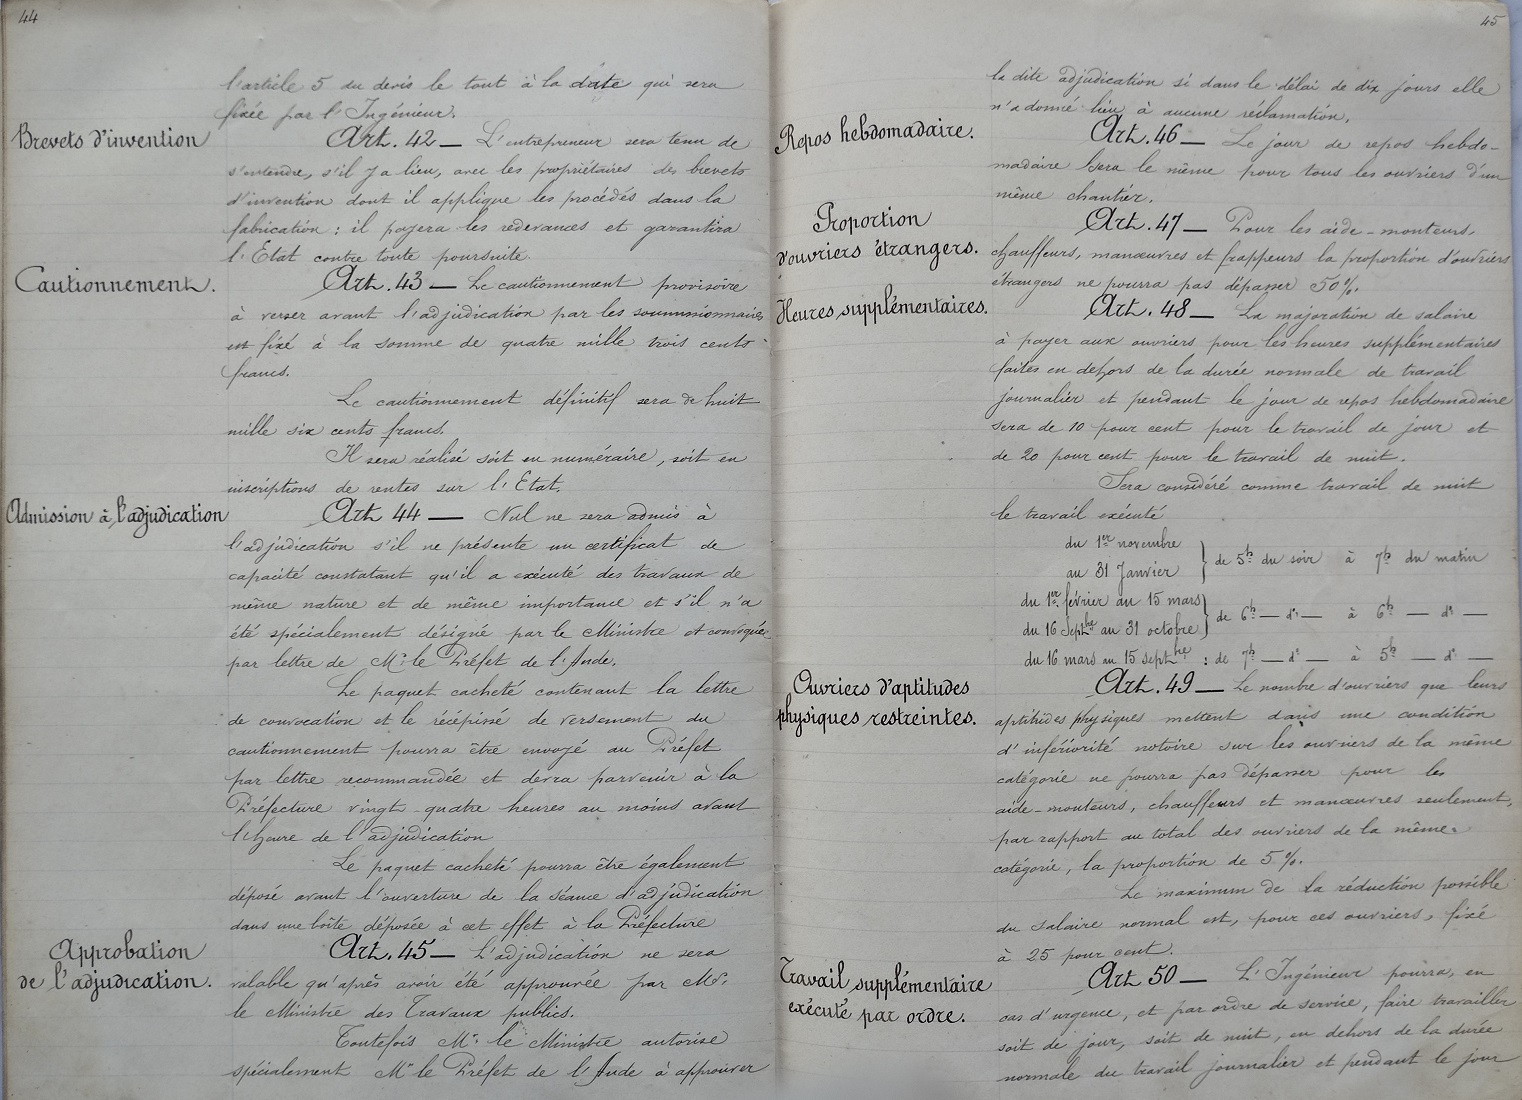 44
l'article 5 du devis le tout à la date qui sera
fixée par l'Ingénieur.
Brevets d'invention
Art. 42 — L'entrepreneur sera tenu de
s'entendre, s'il y a lieu, avec les propriétaires des brevets
d'invention dont il applique les procédés dans la
fabrication : il payera les redevances et garantira
l'Etat contre toute poursuite.
Cautionnement.
Art. 43 — Le cautionnement provisoire
à verser avant l'adjudication par les soumissionnaires
est fixé à la somme de quatre mille trois cents
francs.
Le cautionnement définitif sera de huit
mille six cents francs.
Il sera réalisé soit en numéraire, soit en
inscriptions de rentes sur l'Etat.
Admission à l'adjudication
Art 44 — Nul ne sera admis à
l'adjudication s'il ne présente un certificat de
capacité constatant qu'il a exécuté des travaux de
même nature et de même importance et s'il n'a
été spécialement désigné par le Ministre et convoqué
par lettre de Mr le Préfet de l'Aude.
Le paquet cacheté contenant la lettre
de convocation et le récépissé de versement du
cautionnement pourra être envoyé au Préfet
par lettre recommandée et devra parvenir à la
Préfecture vingt-quatre heures au moins avant
l'heure de l'adjudication
Le paquet cacheté pourra être également
déposé avant l'ouverture de la séance d'adjudication
dans une boîte déposée à cet effet à la Préfecture
Approbation
de l'adjudication.
Art. 45 — L'adjudication ne sera
valable qu'après avoir été approuvée par Mr.
le Ministre des Travaux publics.
Toutefois Mr. le Ministre autorise
spécialement Mr le Préfet de l'Aude à approuver
45
la dite adjudication si dans le délai de dix jours elle
n'a donné lieu à aucune réclamation.
Repos hebdomadaire.
Art. 46 — Le jour de repos hebdo-
madaire sera le même pour tous les ouvriers d'un
même chantier.
Proportion
d'ouvriers étrangers.
Art. 47 — Pour les aide-monteurs,
chauffeurs, manœuvres et frappeurs la proportion d'ouvriers
étrangers ne pourra pas dépasser 50%.
Heures supplémentaires.
Art. 48 — La majoration de salaire
à payer aux ouvriers pour les heures supplémentaires
faites en dehors de la durée normale de travail
journalier et pendant le jour de repos hebdomadaire
sera de 10 pour cent pour le travail de jour et
de 20 pour cent pour le travail de nuit.
Sera considéré comme travail de nuit
le travail exécuté
du 1er novembre
au 31 Janvier } de 5h du soir à 7h du matin
du 1er février au 15 mars
du 16 Septbre au 31 octobre } de 6h — do — à 6h — do —
du 16 mars au 15 septbre : de 7h — do — à 5h — do —
Ouvriers d'aptitudes
physiques restreintes.
Art. 49 — Le nombre d'ouvriers que leurs
aptitudes physiques mettent dans une condition
d'infériorité notoire sur les ouvriers de la même
catégorie ne pourra pas dépasser pour les
aide-monteurs, chauffeurs et manœuvres seulement,
par rapport au total des ouvriers de la même
catégorie, la proportion de 5%.
Le maximum de la réduction possible
du salaire normal est, pour ces ouvriers, fixé
à 25 pour cent.
Travail supplémentaire
exécuté par ordre.
Art 50 — L'Ingénieur pourra, en
cas d'urgence, et par ordre de service, faire travailler
soit de jour, soit de nuit, en dehors de la durée
normale du travail journalier et pendant le jour